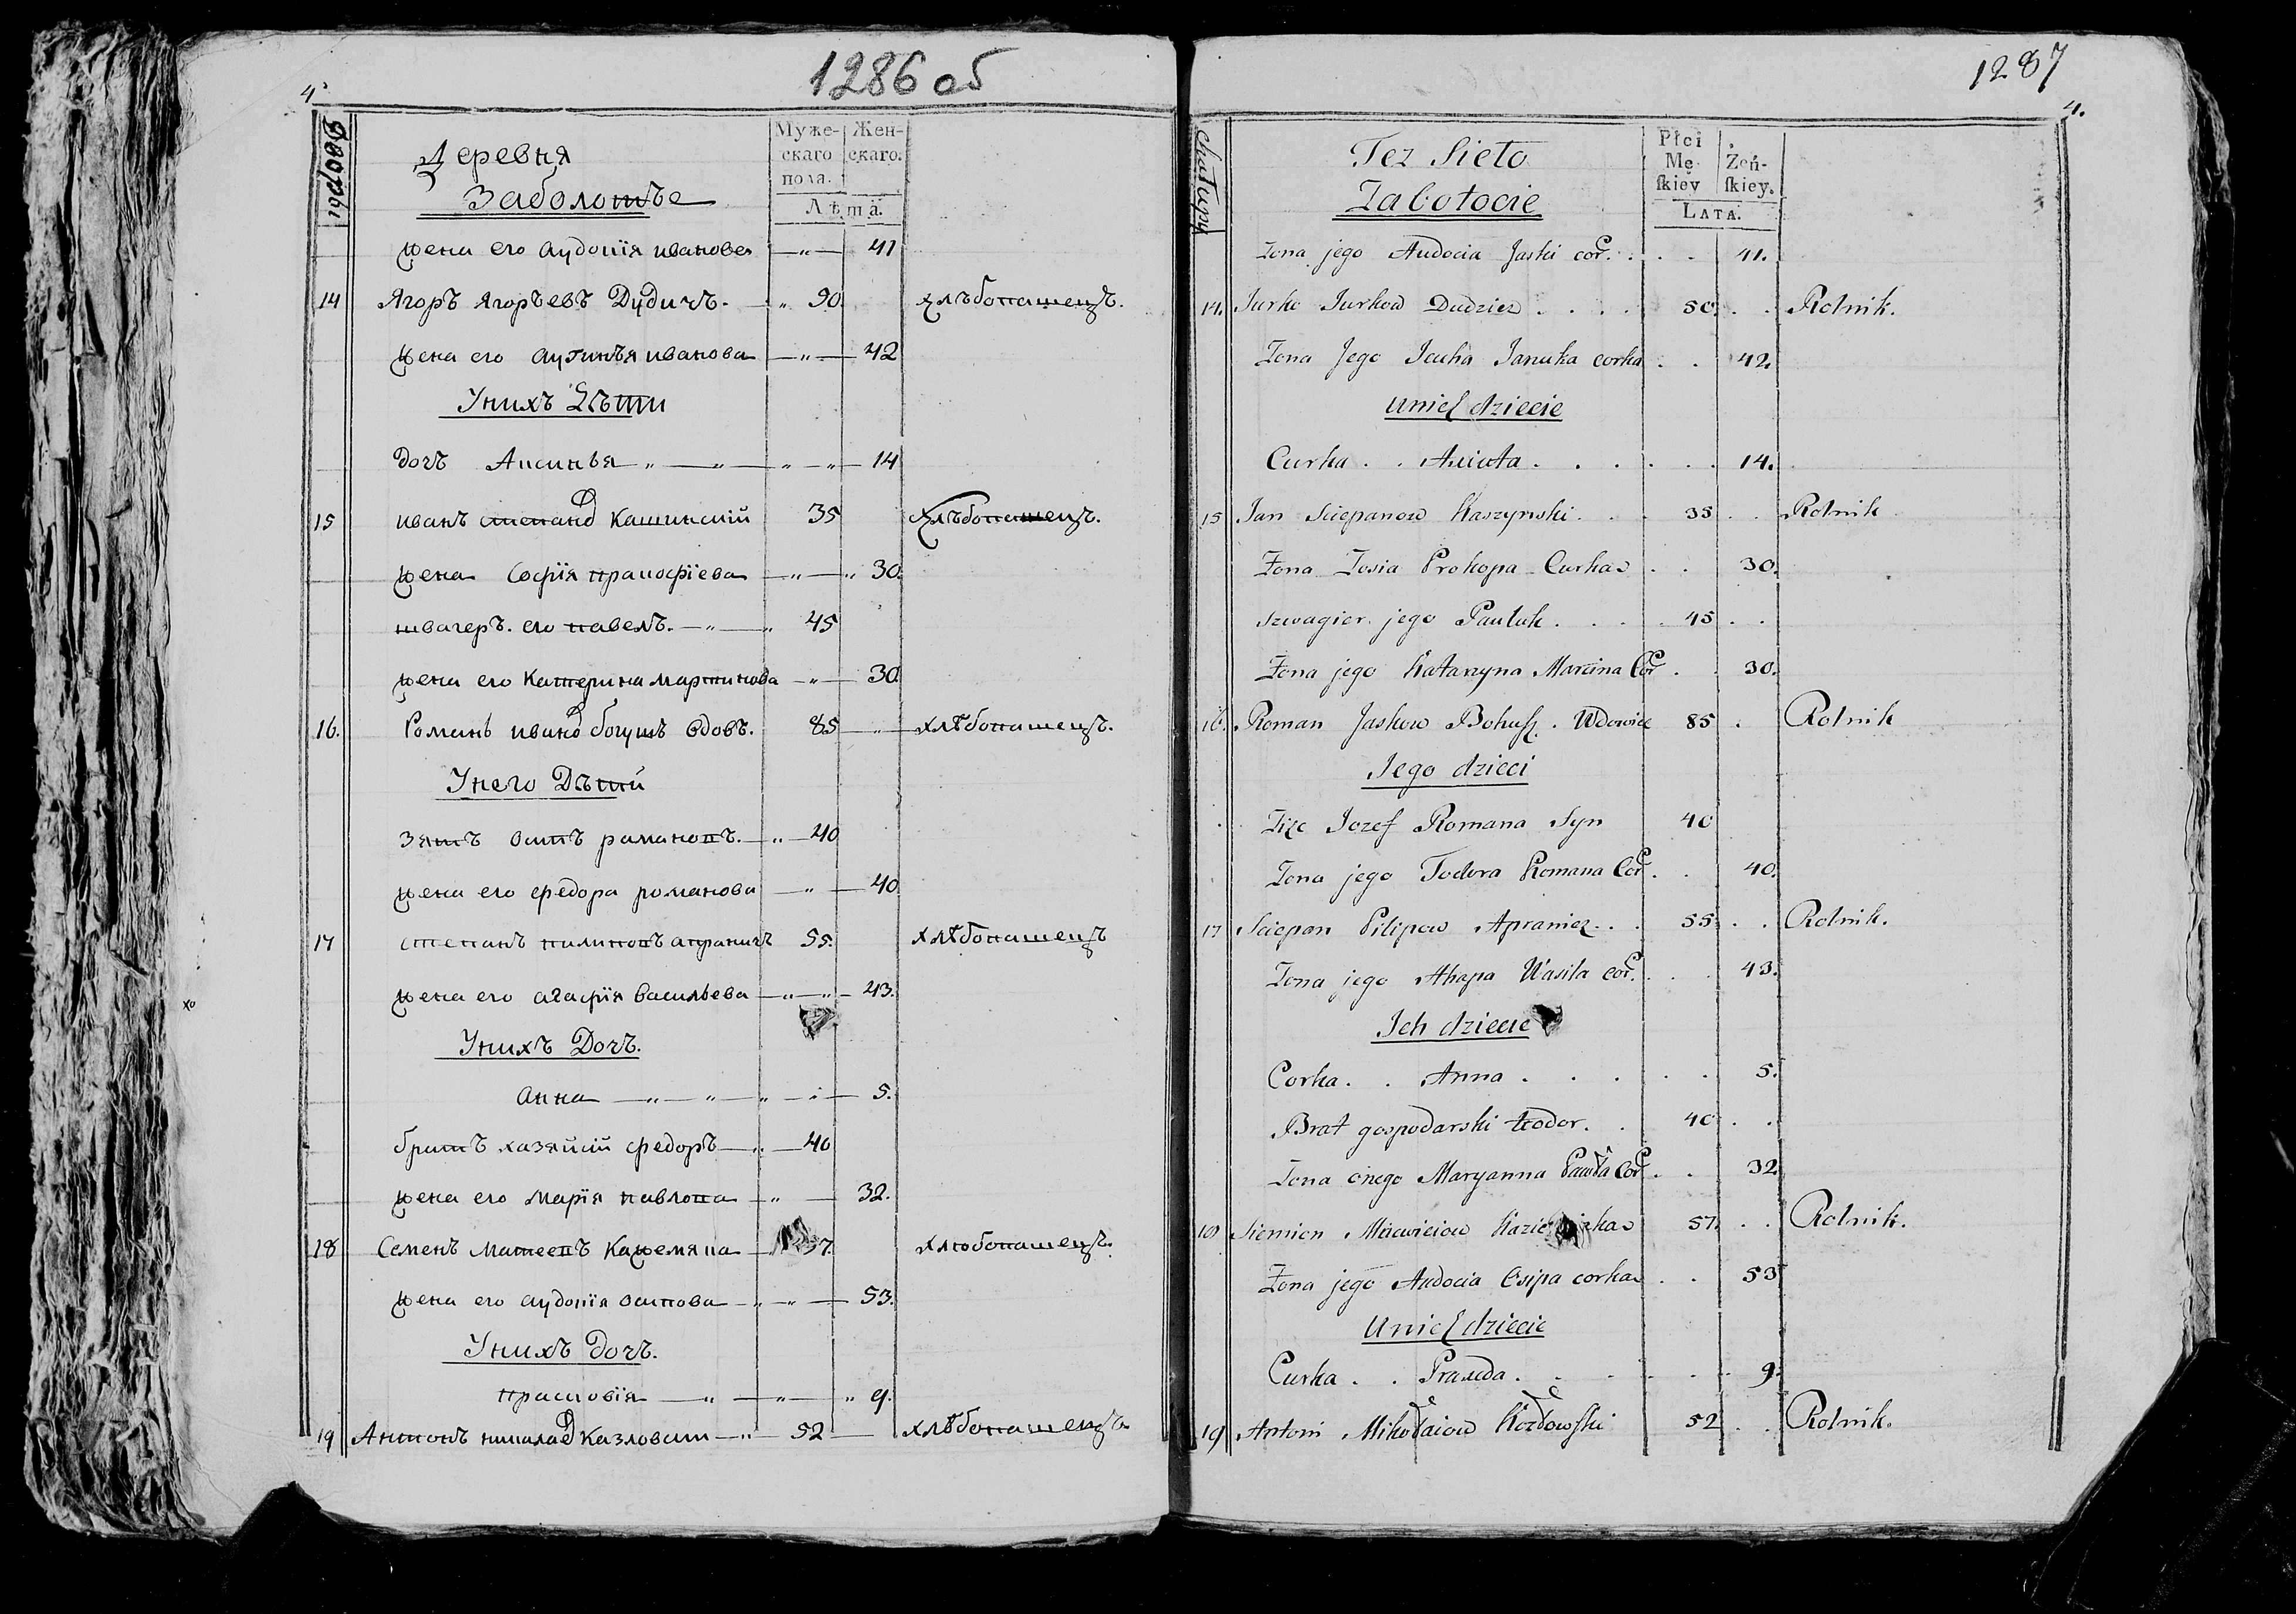 1286 об
4.
Дворы
Деревня
Заболотье
Муже-
скаго
пола.
Жен-
скаго.
Лѣта.
жена его аудоція иванова 41
14 Ягоръ Ягорьевъ Дудичъ. 90 хлѣбопашецъ.
жена его аугинья иванова 42
Унихъ Дѣти
дочъ Аксинья 14
15 иванъ степанов Кашинский 35 хлѣбопашецъ.
жена Софія пракофіева 30.
швагеръ его павелъ. 45
жена его Катерина мартинова 30
16. Романъ иванов богушъ вдовъ. 85 хлѣбопашецъ.
Унего Дѣти
зять осипъ романовъ. 40
жена его федора романова 40
17 степанъ пилиповъ апраничъ 55. хлѣбопашецъ
жена его агафія васильева 43.
Унихъ Дочъ.
анна 5.
братъ хазяйскій федоръ 40
жена его марія павлова 32.
18 Семенъ матеевъ Кажемяка 57. хлѣбопашецъ.
жена его аудокія осипова 53.
Унихъ дочъ.
прасковія 9.
19 Антонъ никалаев Казловски 52 хлѣбопашецъ
1287
4.
Chałupy
Tez Sieło
Zabołocie
Płci
Mę-
skiey
Żeń-
skiey.
LATA.
Zona jego Audocia Jaski cor. 41.
14. Jurko Jurkow Dudzicz 50. Rolnik.
Zona Jego Jeuha Januka corka 42.
Unich dziecie
Curka Aciuta 14.
15 Jan Sciepanow Kaszynski 35 Rolnik
Zona Zosia Prokopa Curka 30.
szwagier jego Pauluk 45
Zona jego Katarzyna Marcina Cor 30.
16. Roman Jaskow Bohusz. Wdowiec 85 Rolnik
Jego dzieci
Zięc Jozef Romana Syn 40
Zona jego Todora Romana Cor 40.
17 Sciepan Pilipow Apranicz 55 Rolnik.
Zona jego Ahapa Wasila cor. 43.
Ich dziecie
Corka Anna 5.
Brat gospodarski teodor. 40
Zona onego Maryanna Pawła Cor 32
18 Siemion Maciwieiow 57. Rolnik.
Zona jego Audocia Osipa corka 53
Unich dziecie
Curka Prauda 9.
19 Antoni Mikołaiow Kozłowski 52 Rolnik.